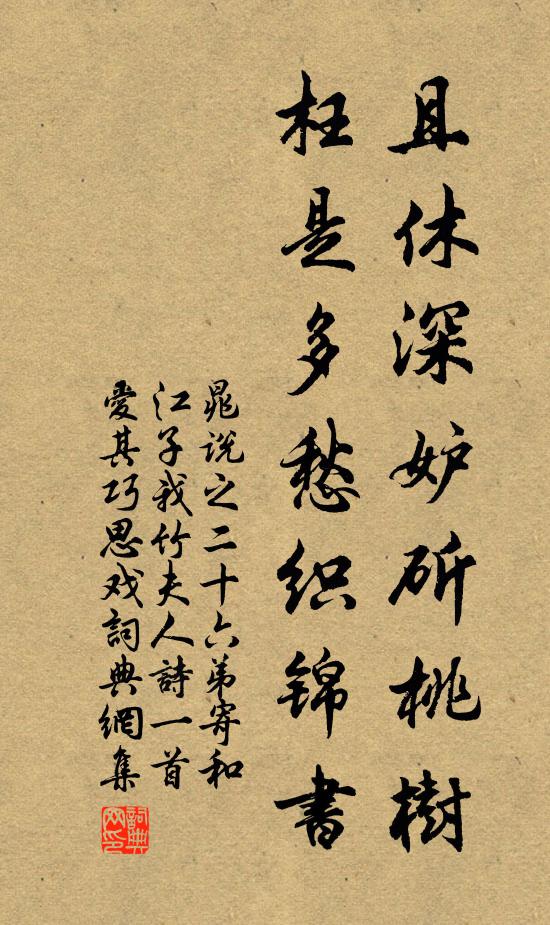 且休深妒斫桃樹
枉是多愁織錦書
晁說之二十六弟寄和
江子我竹夫人詩一首
愛其巧思戏詞典網集
詞典
网印